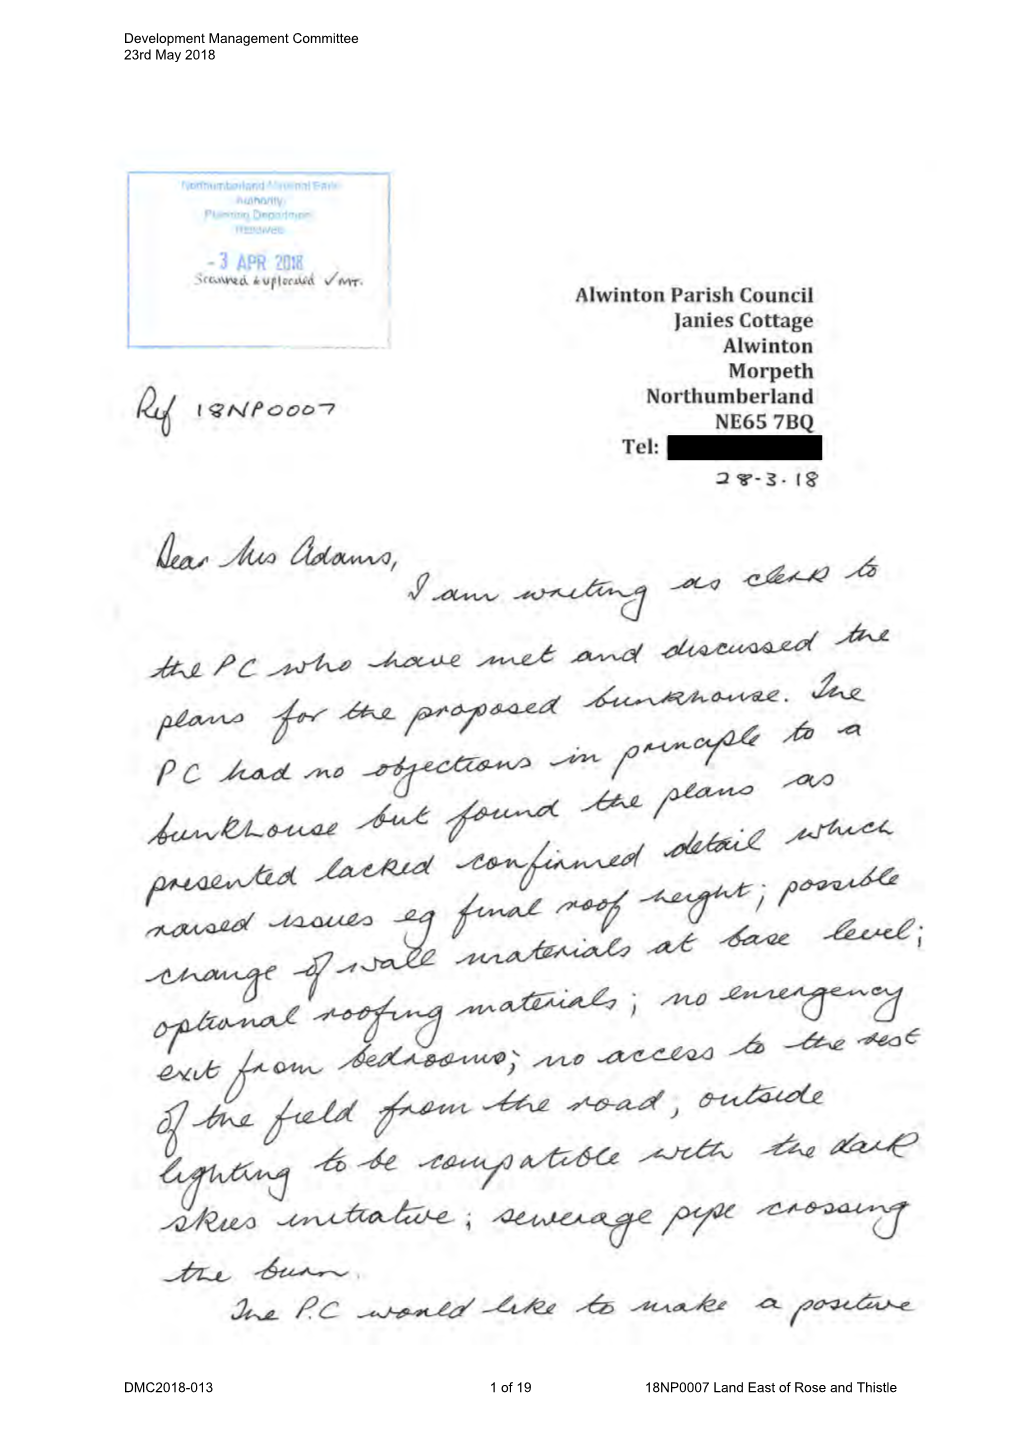 Development Management Committee
23rd May 2018
Northumberland National Park
Authority
Planning Department
- 3 APR 2018
Scanned & uploaded ✓ MT.
Alwinton Parish Council
Janies Cottage
Alwinton
Morpeth
Northumberland
NE65 7BQ
Tel:
28-3-18
Ref 18NP0007
Dear Mrs Adams,
I am writing as clerk to
the PC who have met and discussed the
plans for the proposed bunkhouse. The
PC had no objections in principle to a
bunkhouse but found the plans as
presented lacked confirmed detail which
raised issues eg final roof height; possible
change of wall materials at base level;
optional roofing materials; no emergency
exit from bedrooms; no access to the rest
of the field from the road, outside
lighting to be compatible with the dark
skies initiative; sewerage pipe crossing
the burn.
The P.C would like to make a positive
DMC2018-013
1 of 19
18NP0007 Land East of Rose and Thistle